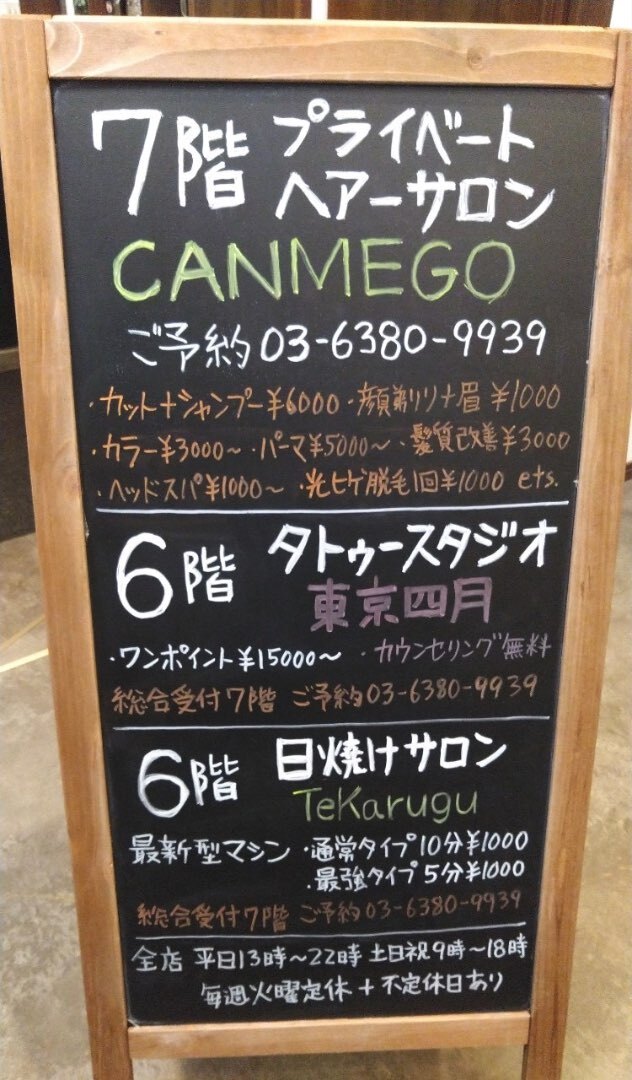 7階 プライベート
ヘアーサロン
CANMEGO
ご予約 03-6380-9939
・カット+シャンプー¥6000 ・顔剃り+眉 ¥1000
・カラー¥3000〜 ・パーマ¥5000〜 ・髪質改善¥3000
・ヘッドスパ¥1000〜 ・光ヒゲ脱毛1回¥1000 ets.
6階 タトゥースタジオ
東京四月
・ワンポイント¥15000〜 ・カウンセリング無料
総合受付7階 ご予約03-6380-9939
6階 日焼けサロン
TeKarugu
最新型マシン ・通常タイプ10分¥1000
・最強タイプ5分¥1000
総合受付7階 ご予約03-6380-9939
全店 平日13時〜22時 土日祝9時〜18時
毎週火曜定休+不定休日あり